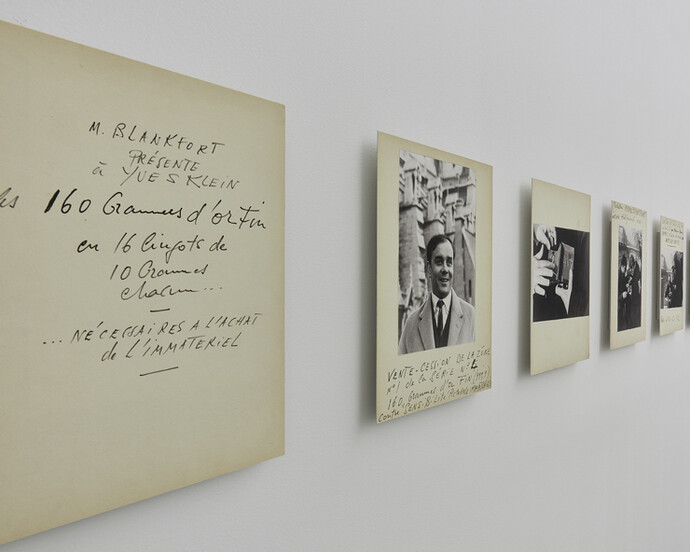 M. BLANKFORT
PRÉSENTE
à YVES KLEIN
les 160 Grammes d'or Fin
en 16 lingots de
10 Grammes
chacun...
... NÉCESSAIRES A L'ACHAT
de L'IMMATERIEL
VENTE-CESSION DE LA ZÔNE
n°1 de la SÉRIE n°4
160 Grammes d'or FIN
contre SENSIBILITÉ